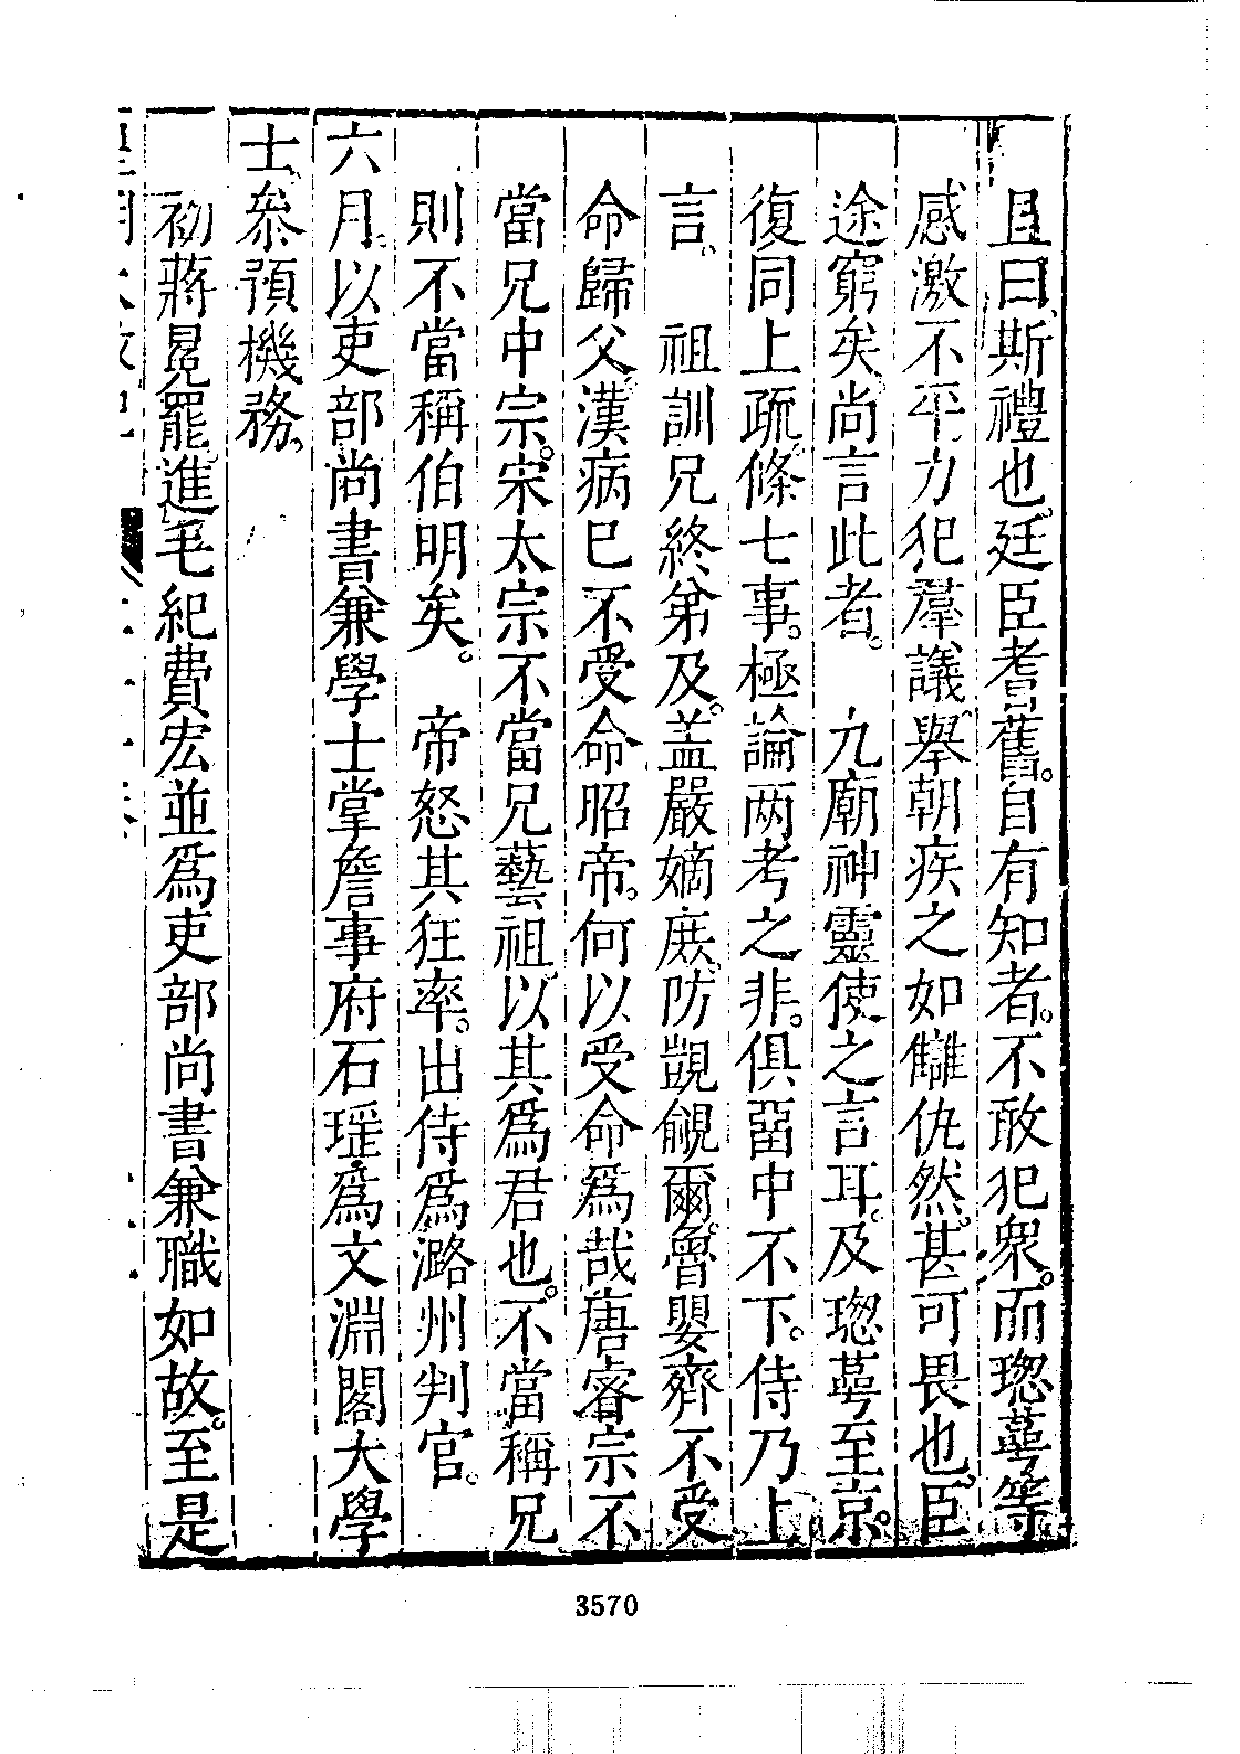 且曰斯禮也廷臣耆舊。自有知者。不敢犯衆。而璁萼等
感激不平。力犯羣議。舉朝疾之如讎仇然。甚可畏也。臣
途窮矣。尚言此者。　九廟神靈使之言耳。及璁萼至京。
復同上疏。條七事。極論两考之非。俱留中不下。侍乃上
言。　祖訓兄終弟及。盖嚴嫡庶。防覬覦爾。魯嬰齊不受
命歸父。漢病已不受命昭帝。何以受命爲哉。唐睿宗不
當兄中宗。宋太宗不當兄藝祖。以其爲君也。不當稱兄
則不當稱伯明矣。　帝怒其狂率。出侍爲潞州判官。
六月。以吏部尚書兼學士掌詹事府石珤爲文淵閣大學
士。叅預機務。
初蔣冕罷。進毛紀費宏並爲吏部尚書兼職如故。至是
3570